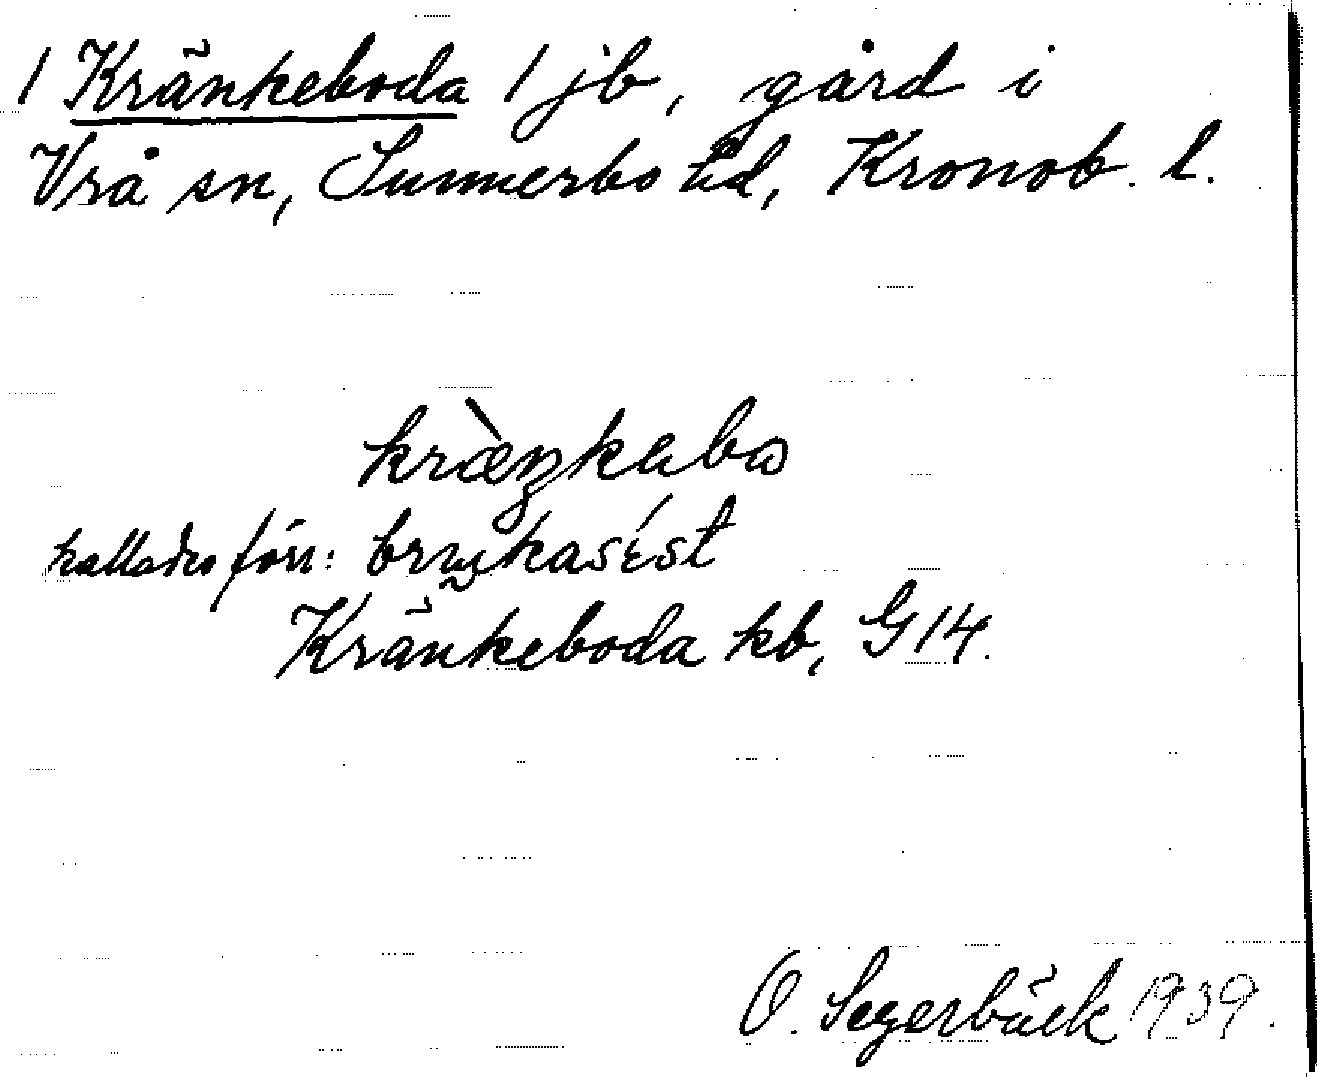 / Kränkeboda / jb, gård i
Vrå sn, Sunnerbo hd, Kronob. l.
kræ̀ŋkabo
kallades förr:
Kränkeboda kb, G 14.
O. Segerbäck 1939.